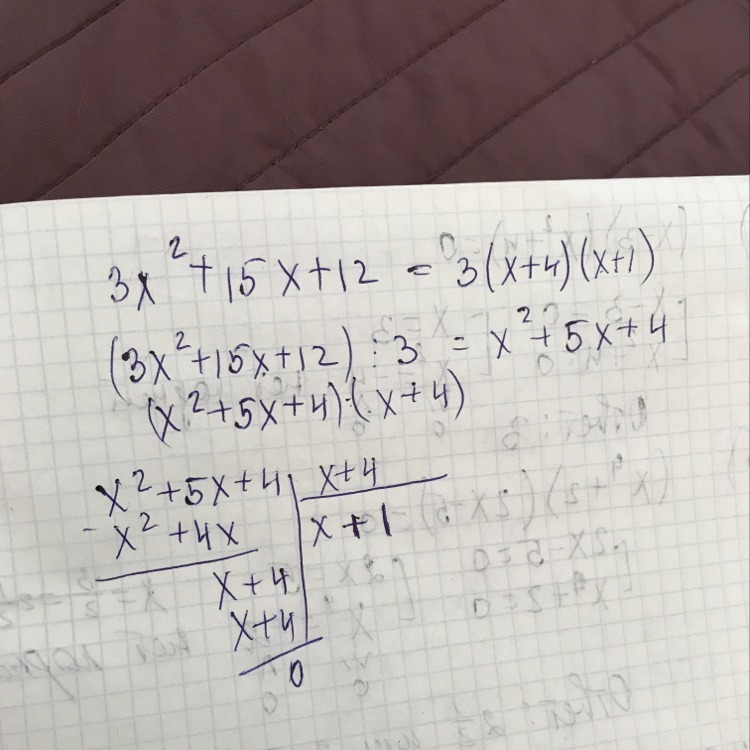 3x² + 15x + 12 = 3(x+4)(x+1)
(3x² + 15x + 12) : 3 = x² + 5x + 4
(x² + 5x + 4) : (x + 4)
x² + 5x + 4 | x + 4
- x² + 4x | x + 1
x + 4
x + 4
0